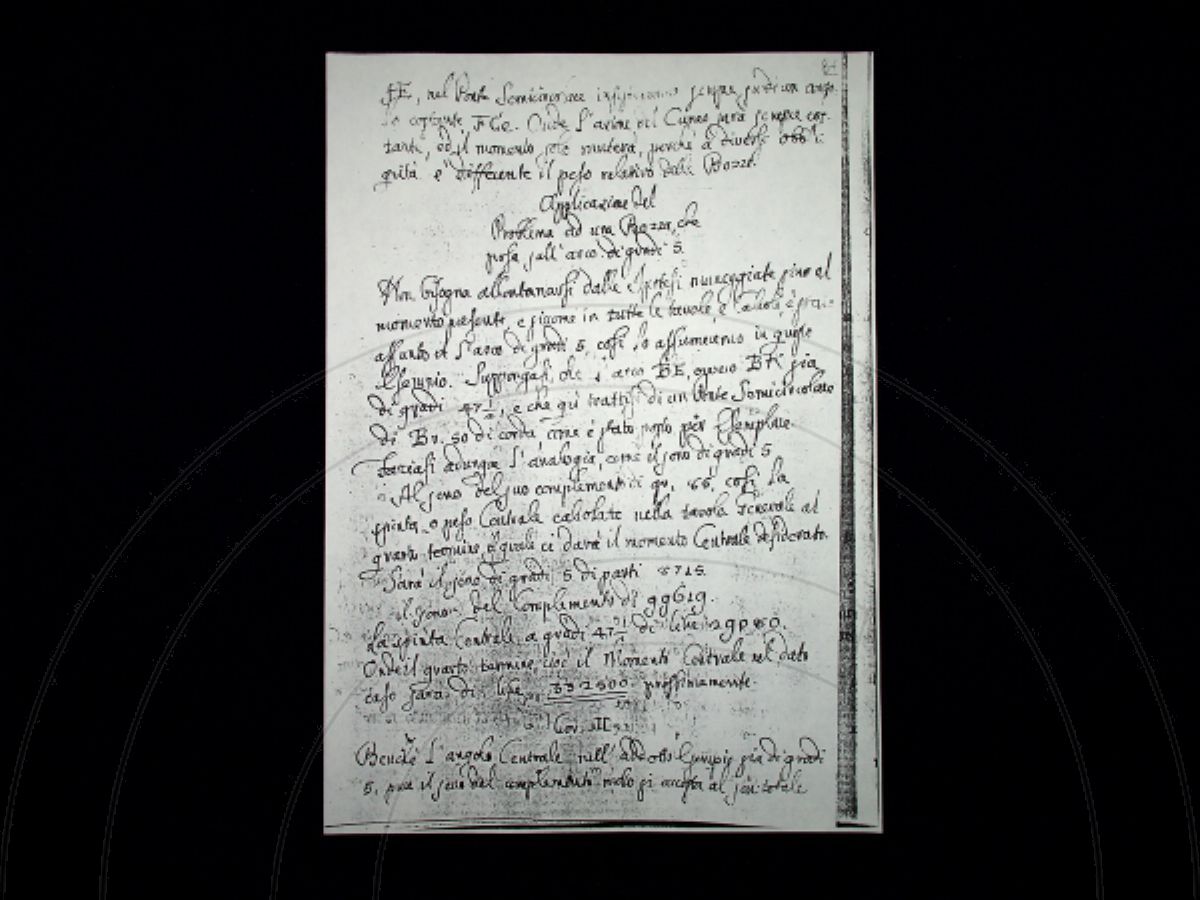 FE, nel Ponte Semicircolare sempre sarà un ango-
lo costante FCe. Onde l'azione del Cuneo sarà sempre cos-
tante, ed il momento solo muterà, perche à diverse obbli-
quità e differente il peso relativo delle Bozze.
Applicazione del
Problema ad una Bozza, che
posa sull'arco di gradi 5.
Non bisogna allontanarsi dalle Ipotesi maneggiate fino al
momento presente, e sicome in tutte le tavole, e
assunto l'arco di gradi 5, cosi lo assumeremo in questo
Esempio. Suppongasi, che l'arco BE, ovvero BK sia
di gradi 47 1/2, e che qui trattisi di un Ponte Semicircolare
di Br. 50 di corda, come è stato per Esemplare.
Facciasi adunque l'analogia, come il seno di gradi 5
Al seno del suo complemento di gr. 85, cosi la
spinta, o peso Centrale calcolate nella tavola Generale al
quarto termine, il quale ci darà il momento Centrale desiderato.
Sarà il seno di gradi 5 di parti 8715.
il seno del Complemento di 99619.
La spinta Centrale a gradi 47 1/2 di libre
Onde il quarto termine, cioè il Momento Centrale nel dato
caso sarà di libre 332500 prossimamente.
Cor. II
Benche l'angolo Centrale nell' Esempio sia di gradi
5, pure il seno del complemento molto si accosta al seno totale